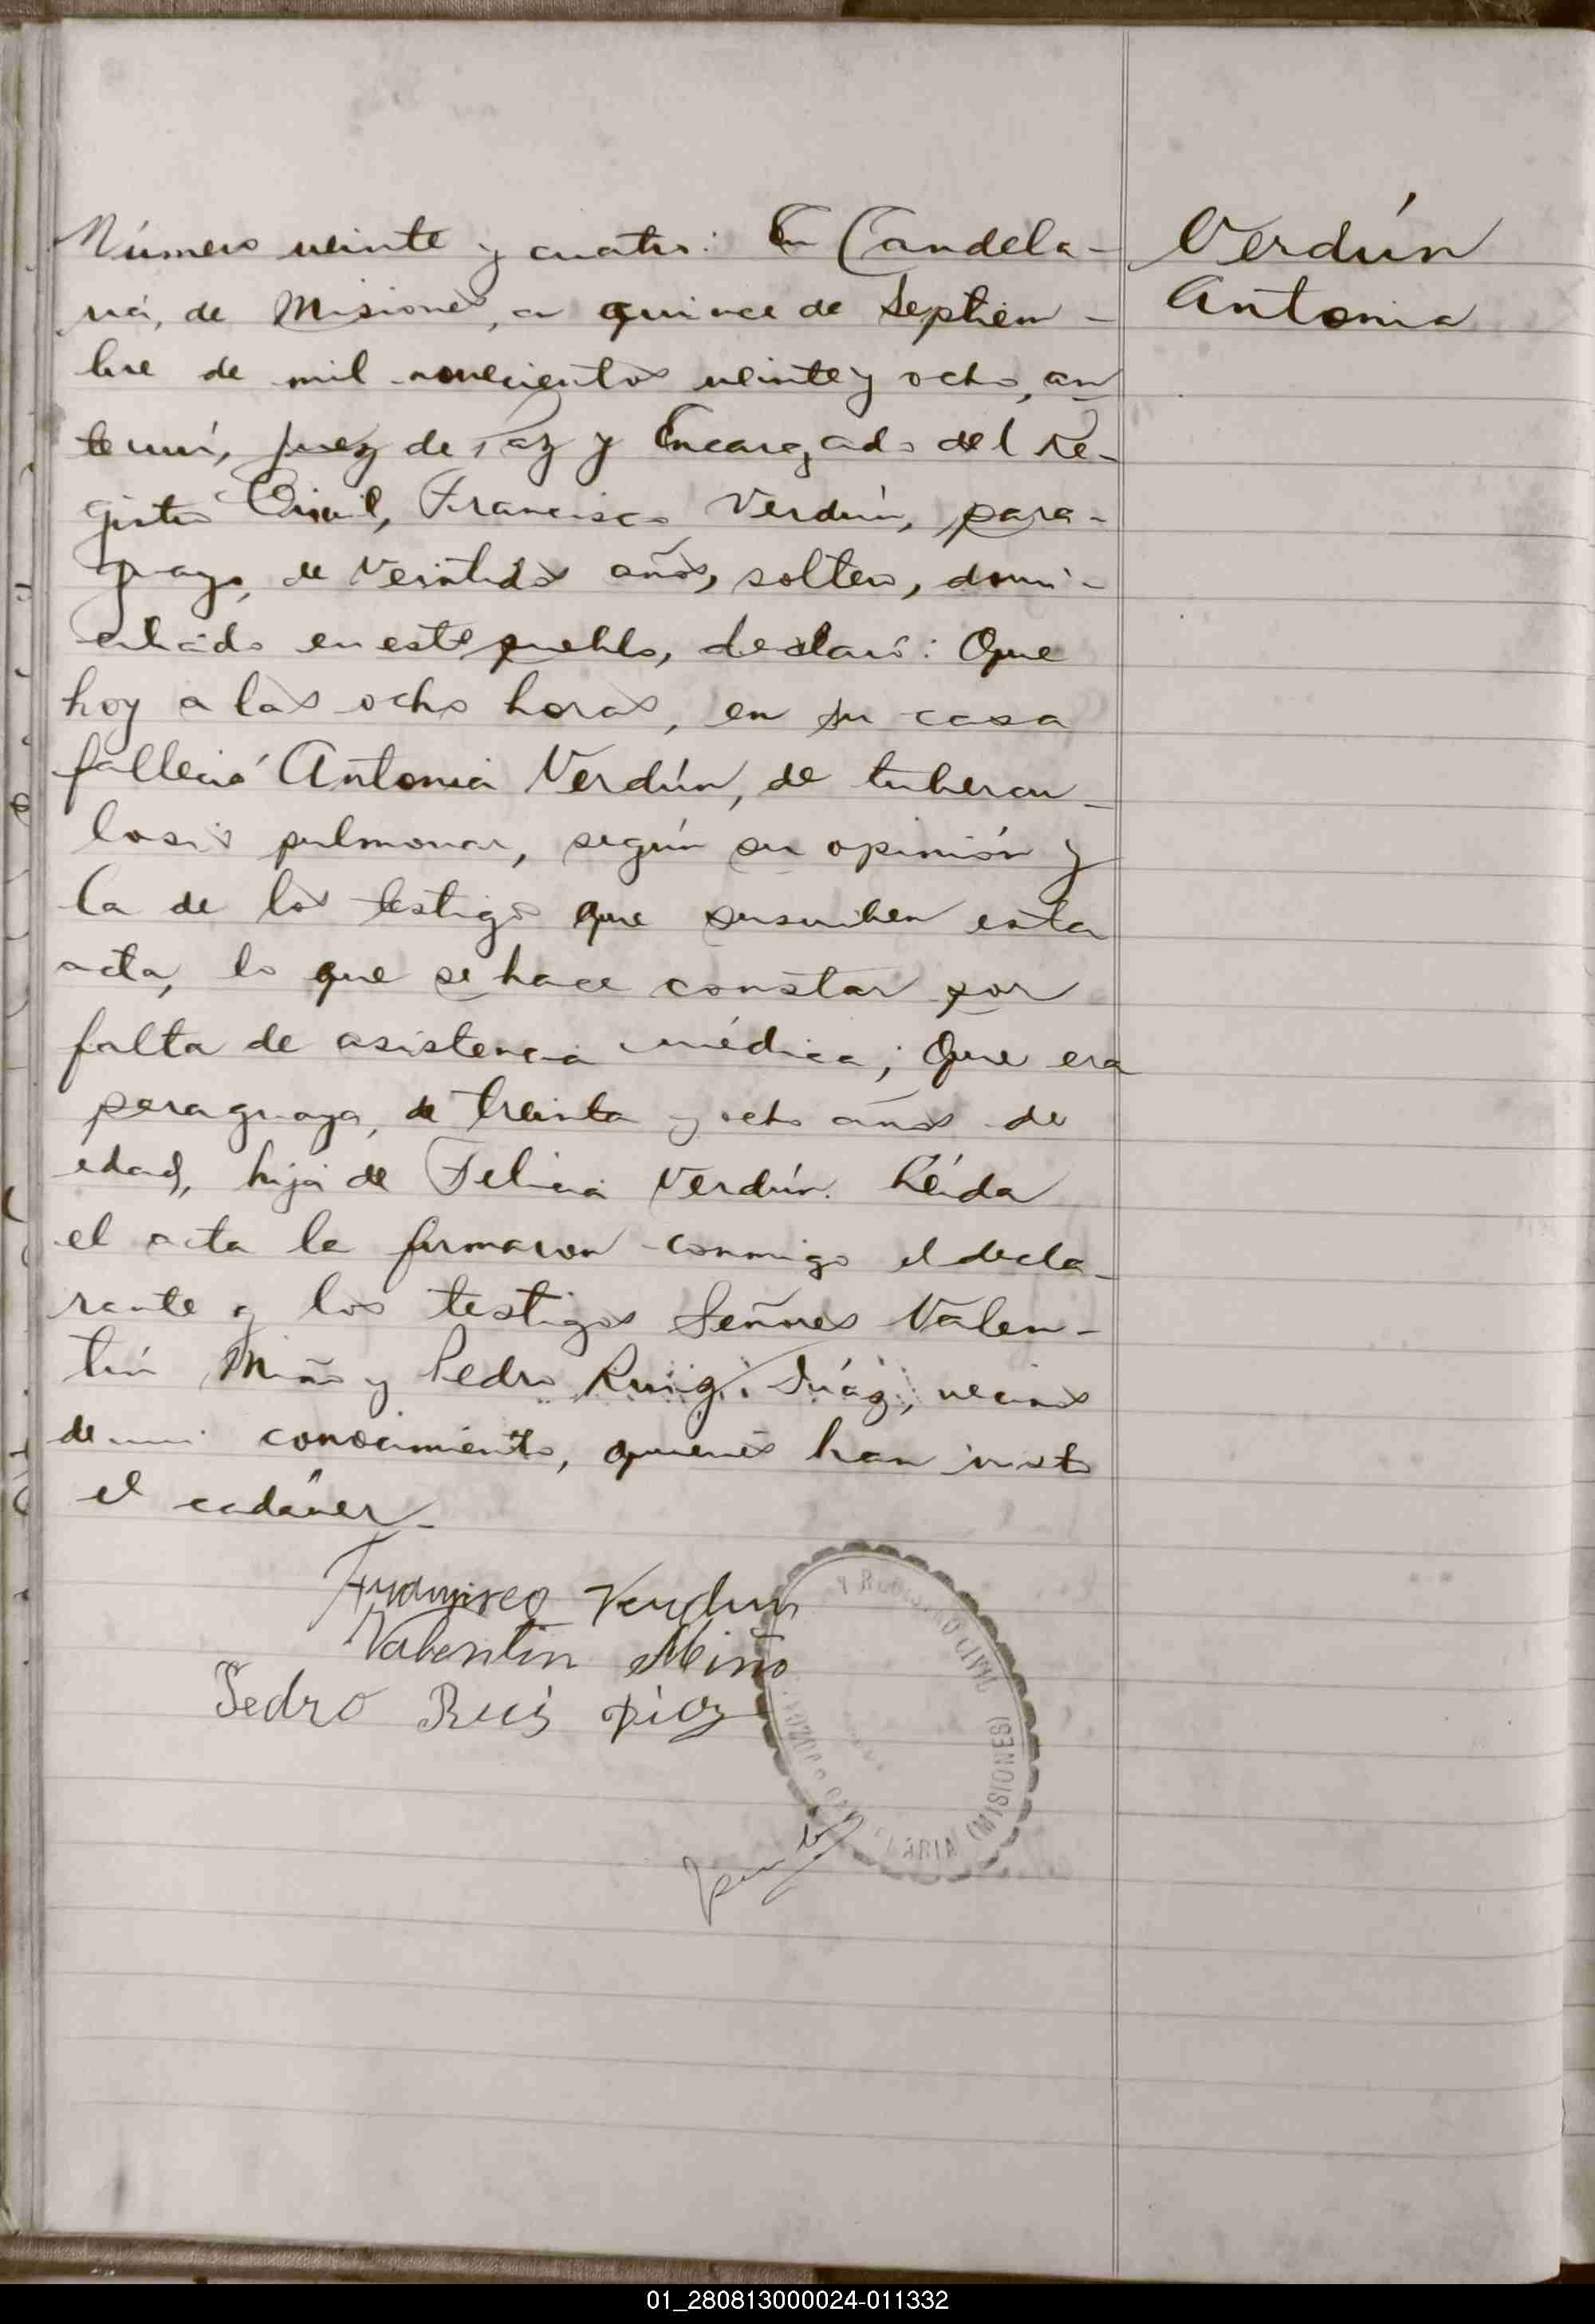 Número veinte y cuatro: En Candela-
ria, de Misiones, a quince de Septiem-
bre de mil novecientos veinte y ocho, an
te mi, Juez de Paz y Encargado del Re-
gistro Civil, Francisco Verdún, para-
guayo, de veintidós años, soltero, domi-
ciliado en este pueblo, declaró: Que
hoy a las ocho horas, en su casa
falleció Antonia Verdún, de tubercu-
losis pulmonar, según su opinión y
la de los testigos que suscriben esta
acta, lo que se hace constar por
falta de asistencia médica; Que era
paraguaya, de treinta y ocho años de
edad, hija de Felicia Verdún. Leída
el acta la firmaron conmigo el decla-
rante y los testigos Señores Valen-
tín Miño y Pedro Ruiz Díaz, vecinos
de mi conocimiento, quienes han visto
el cadáver-
Francisco Verdun
Valentin Miño
Pedro Ruis Diaz
Verdún
Antonia
Y REGISTRO CIVIL
(MISIONES)
01_280813000024-011332